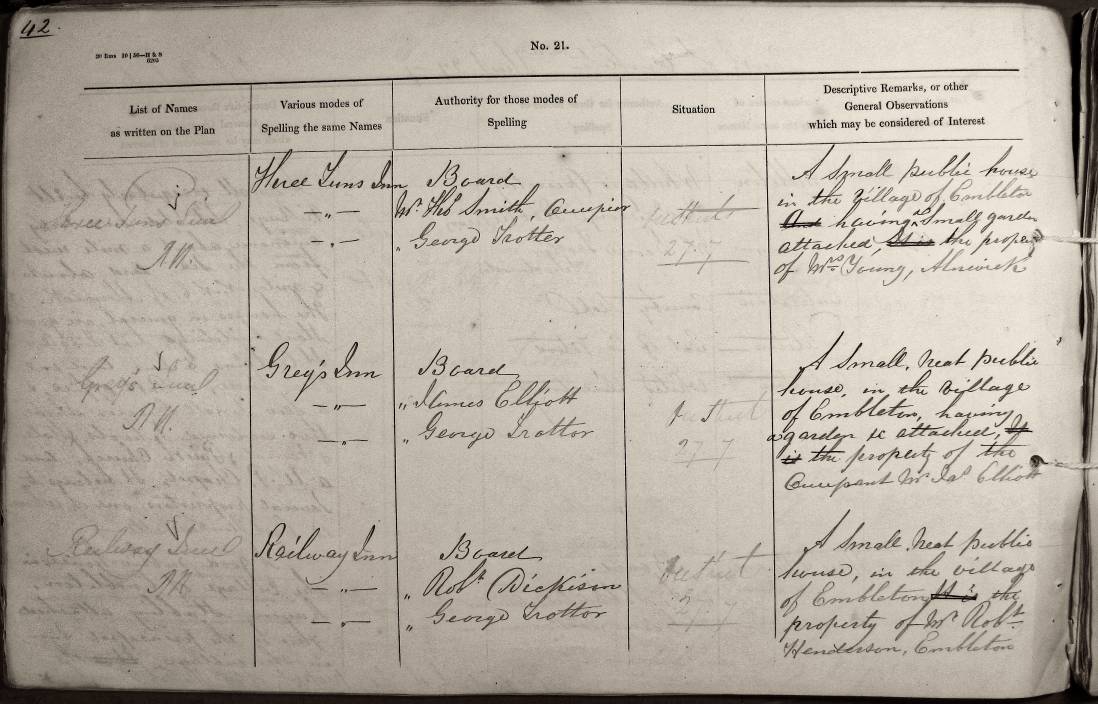 42.
No. 21.
List of Names
as written on the Plan
Various modes of
Spelling the same Names
Authority for those modes of
Spelling
Situation
Descriptive Remarks, or other
General Observations
which may be considered of Interest
Three Tuns Inn
Board
Mr. Thos Smith, Occupier
" George Trotter
27·7
A Small public house
in the Village of Embleton
having a Small garden
attached, It is the property
of Mrs Young, Alnwick
Greg's Inn
Greg's Inn
Board
" James Elliott
" George Trotter
27 7
A Small, Neat public
house, in the village
of Embleton, having
a garden &c attached, It
is the property of the
Occupant Mr Jas Elliott
Railway Inn
Railway Inn
Board
" Robt Dickison
" George Trotter
27 7
A Small Neat public
house, in the village
of Embleton It is the
property of Mr Robt
Henderson, Embleton